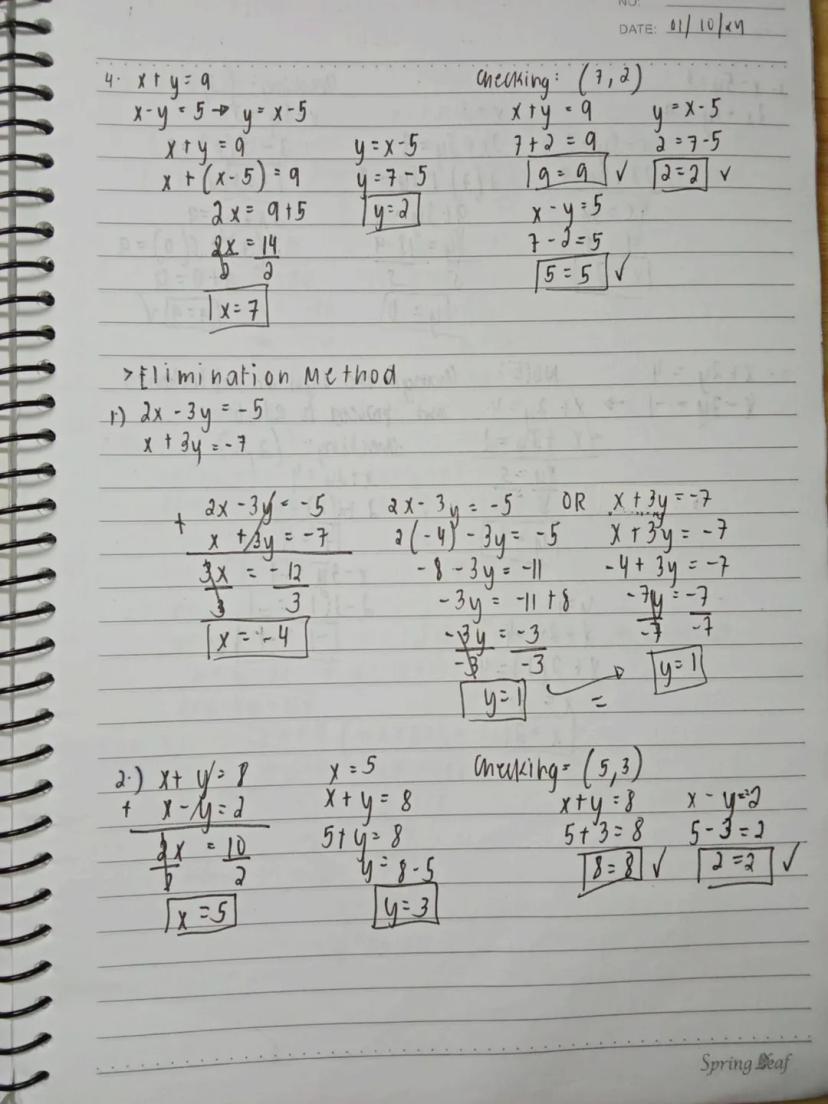 NO:
DATE: 01/10/24
4. x + y = 9
x - y = 5 → y = x - 5
x + y = 9
x + (x - 5) = 9
2x = 9 + 5
2x = 14
2 2
x = 7
y = x - 5
y = 7 - 5
y = 2
Checking: (7, 2)
x + y = 9
7 + 2 = 9
9 = 9 ✓
y = x - 5
2 = 7 - 5
2 = 2 ✓
x - y = 5
7 - 2 = 5
5 = 5 ✓
> Elimination Method
1) 2x - 3y = -5
x + 3y = -7
2x - 3y = -5
+ x + 3y = -7
3x = -12
3 3
x = -4
2x - 3y = -5
2(-4) - 3y = -5
-8 - 3y = -11
-3y = -11 + 8
-3y = -3
-3 -3
y = 1
=
OR x + 3y = -7
x + 3y = -7
-4 + 3y = -7
-7y = -7
-7 -7
y = 1
2.) x + y = 8
+ x - y = 2
2x = 10
2 2
x = 5
x = 5
x + y = 8
5 + y = 8
y = 8 - 5
y = 3
Checking = (5, 3)
x + y = 8
5 + 3 = 8
8 = 8 ✓
x - y = 2
5 - 3 = 2
2 = 2 ✓
Spring Leaf